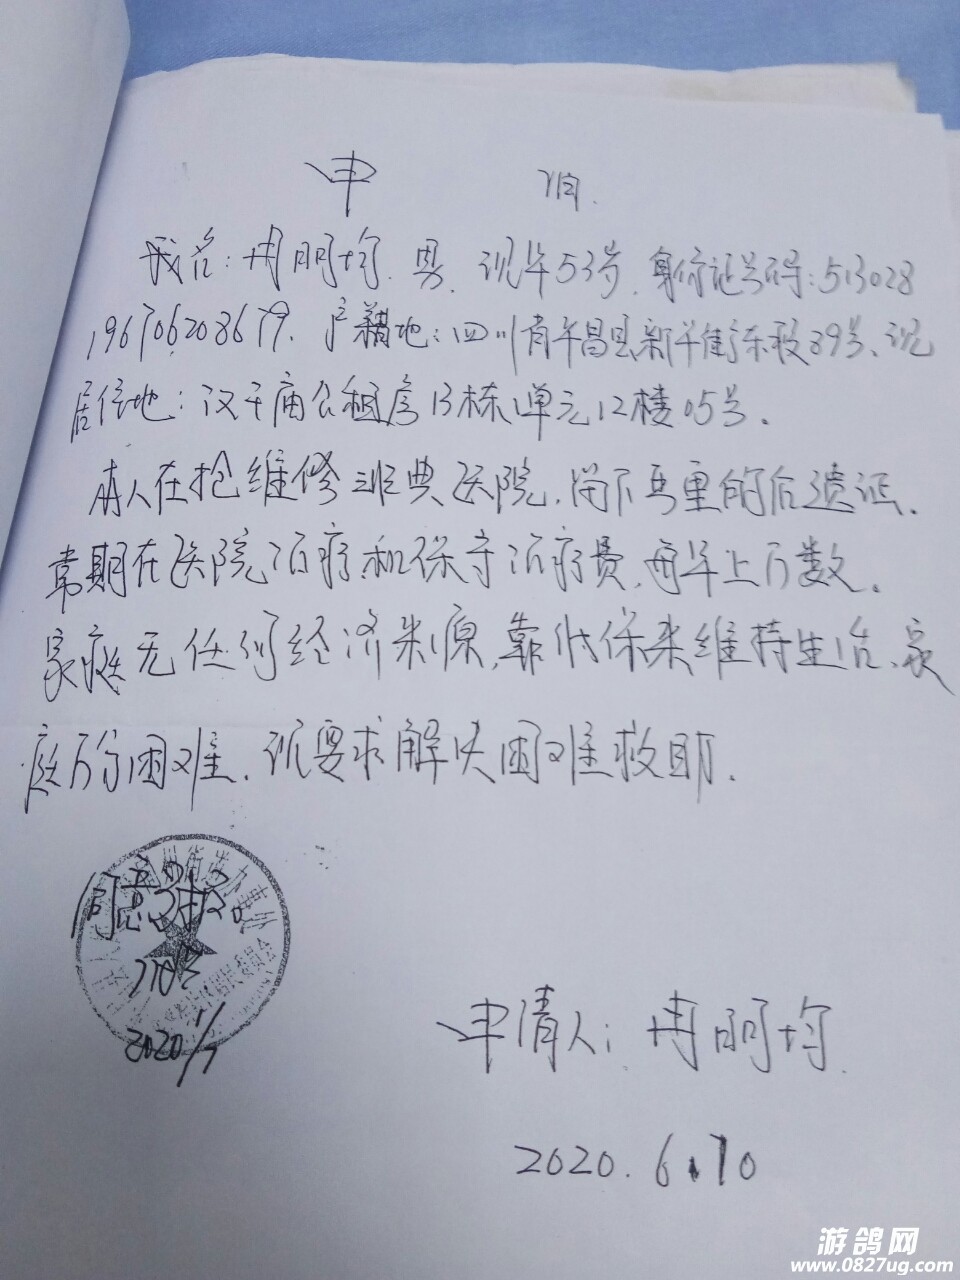 申 请.
我名:冉明均.男.现年53岁.身份证号码:513028
196706208679.户籍地:四川省平昌县新平街东段89号、现
居住地:汉王庙公租房13栋1单元12楼05号.
本人在抢维修 医院,留下严重的后遗证.
常期在医院治疗和保守治疗费,每年上万数.
家庭无任何经济来源,靠低保来维持生活、家
庭万分困难.现要求解决困难救助.
同意
2020 1/7
申请人:冉明均.
2020.6.10
游鸽网
www.0827ug.com